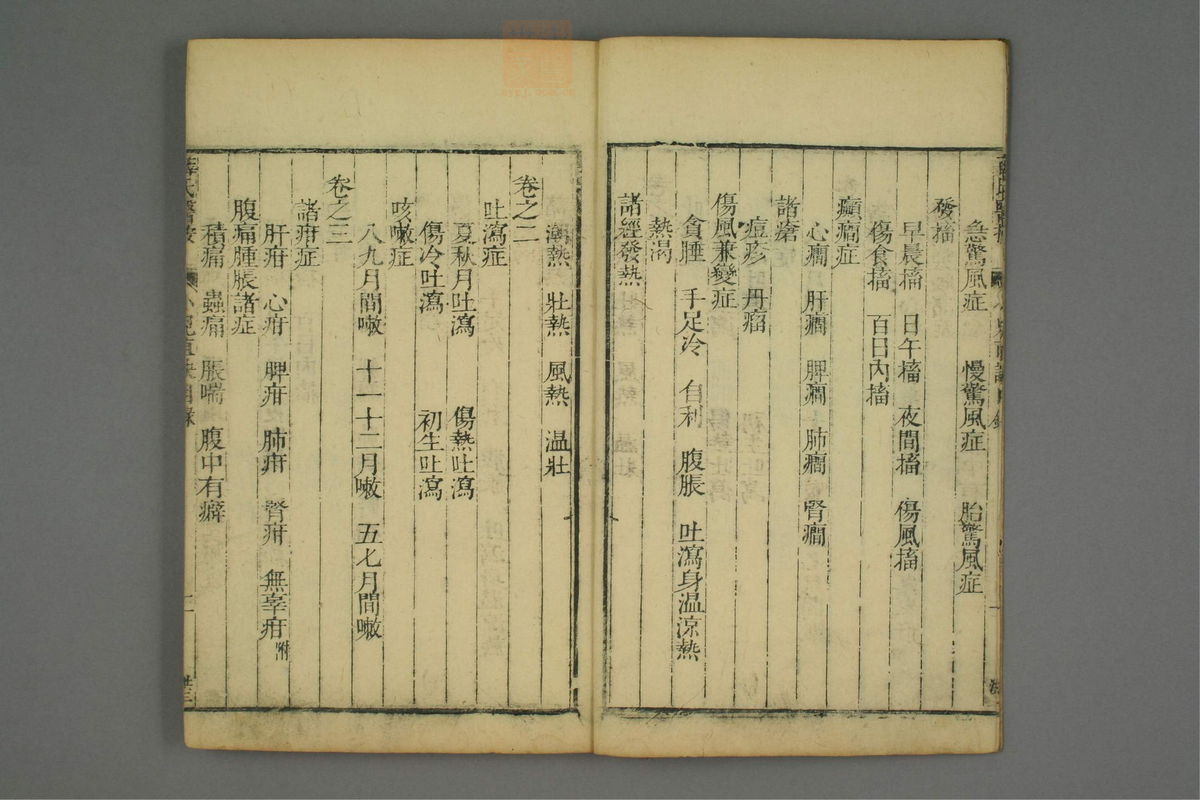 急驚風症　慢驚風症　胎驚風症
發搐
早晨搐　日午搐　夜間搐　傷風搐
傷食搐　百日內搐
癲癎症
心癎　肝癎　脾癎　肺癎　腎癎
諸瘡
痘疹　丹瘤
傷風兼變症
貪睡　手足冷　自利　腹脹　吐瀉身温涼熱
熱渴
諸經發熱
潮熱　壯熱　風熱　温壯
卷之二
吐瀉症
夏秋月吐瀉　傷熱吐瀉
傷冷吐瀉　初生吐瀉
咳嗽症
八九月間嗽　十一十二月嗽　五七月間嗽
卷之三
諸疳症
肝疳　心疳　脾疳　肺疳　腎疳　無辜疳附
腹痛腫脹諸症
積痛　蟲痛　脹喘　腹中有癖